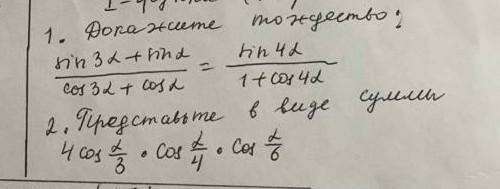 1. Докажите тождество:
sin3α + sinα / cos3α + cosα = sin4α / 1 + cos4α
2. Представьте в виде суммы
4 cos α/3 • cos α/4 • cos α/6